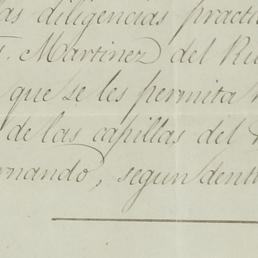 as diligencias practi
. Martinez del Ru
que se les permita
de las capillas del
rnando, segun dent